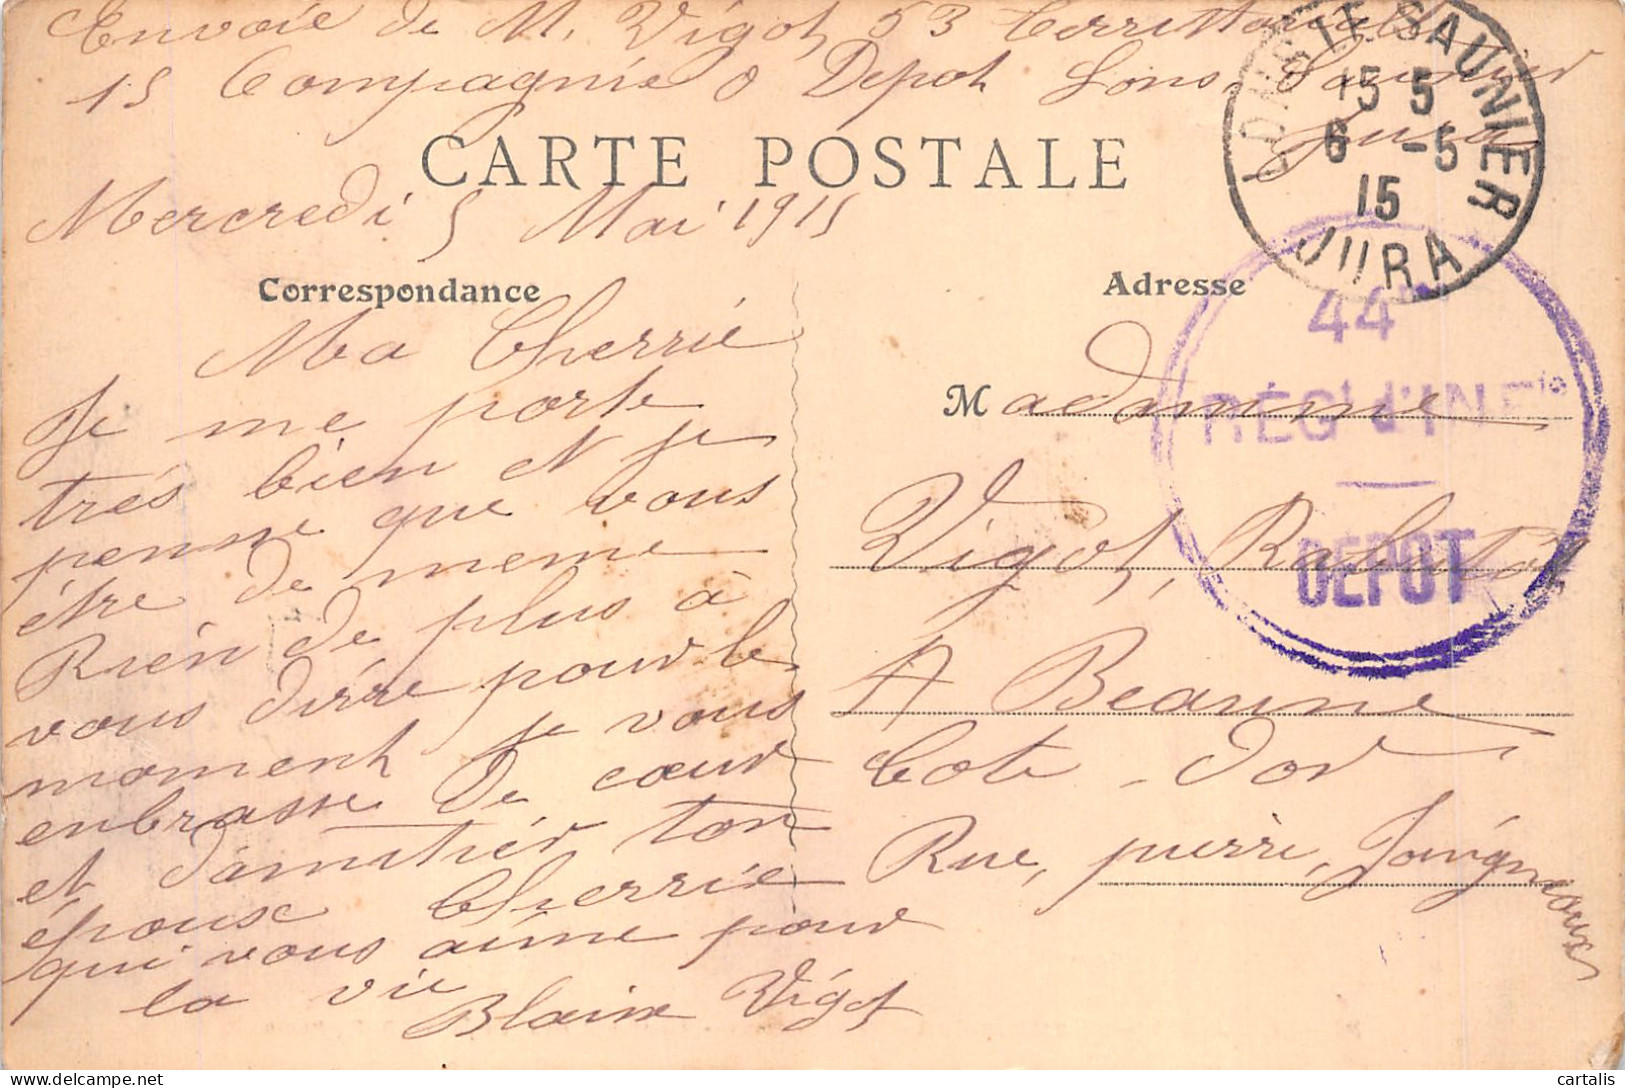 Envoie de M. Vigot 53 Territorialle
15 Compagnie O Depot Lons Saunier
Jura
CARTE POSTALE
Mercredi 5 Mai 1915
LONS-LE-SAUNIER
15 5
6 -5
15
JURA
Correspondance
Ma Cherrie
Je me porte
trés bien et je
penne que vous
étre de meme
Rien de plus à
vous dirre pour le
moment je vous
enbrasse de cœur
et d'amitiér ton
époux Cherrie
qui vous aime pour
la vie
Blaise Vigot
Adresse
44
RÉGt d'INFie
DEPOT
Madmme
Vigot,
A Beaune
Cote - dor
Rue, pierre, Joingneoux
cartalis